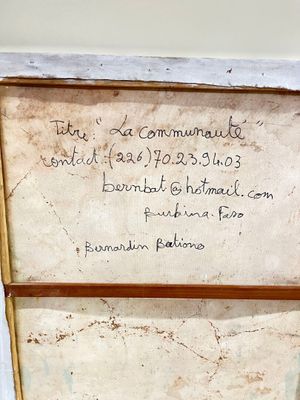 Titre: "La communauté"
contact: (226) 70.23.94.03
bernbat@hotmail.com
Burkina Faso
Bernardin Bationo